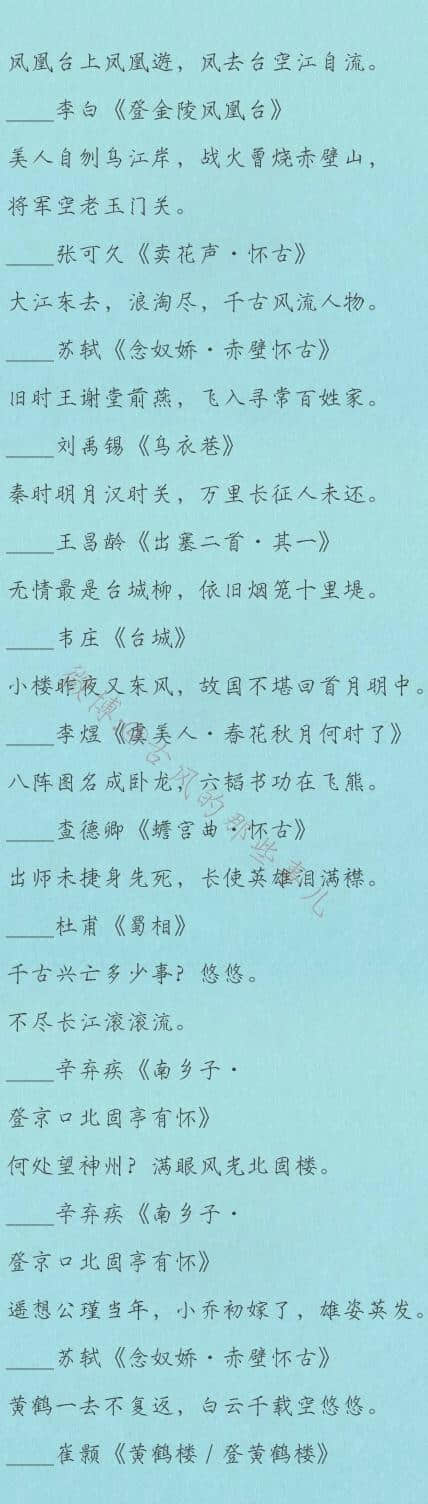 凤凰台上凤凰遊，凤去台空江自流。
____李白《登金陵凤凰台》
美人自刎乌江岸，战火曾烧赤壁山，
将军空老玉门关。
____张可久《卖花声·怀古》
大江东去，浪淘尽，千古风流人物。
____苏轼《念奴娇·赤壁怀古》
旧时王谢堂前燕，飞入寻常百姓家。
____刘禹锡《乌衣巷》
秦时明月汉时关，万里长征人未还。
____王昌龄《出塞二首·其一》
无情最是台城柳，依旧烟笼十里堤。
____韦庄《台城》
小楼昨夜又东风，故国不堪回首月明中。
____李煜《虞美人·春花秋月何时了》
八阵图名成卧龙，六韬书功在飞熊。
____查德卿《蟾宫曲·怀古》
出师未捷身先死，长使英雄泪满襟。
____杜甫《蜀相》
千古兴亡多少事？悠悠。
不尽长江滚滚流。
____辛弃疾《南乡子·
登京口北固亭有怀》
何处望神州？满眼风光北固楼。
____辛弃疾《南乡子·
登京口北固亭有怀》
遥想公瑾当年，小乔初嫁了，雄姿英发。
____苏轼《念奴娇·赤壁怀古》
黄鹤一去不复返，白云千载空悠悠。
____崔颢《黄鹤楼 / 登黄鹤楼》
微博@古风的那些事儿